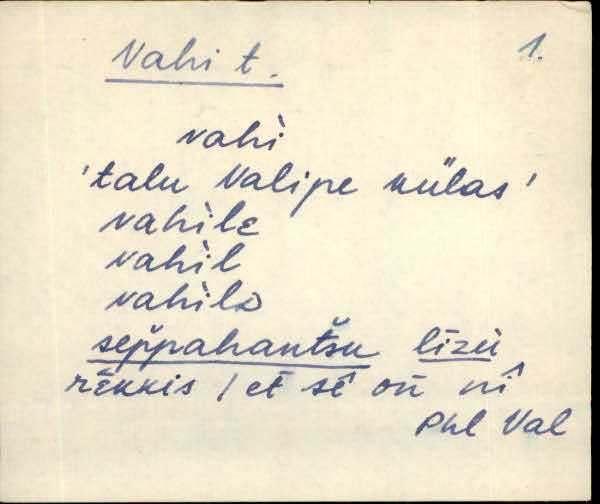 Vahi t. 1.
vahì
'talu Valipe külas'
vahìle
vahìl
vahìlə
sep̆pahantšu līzu
rēkkis / et sē on nî
Phl Val